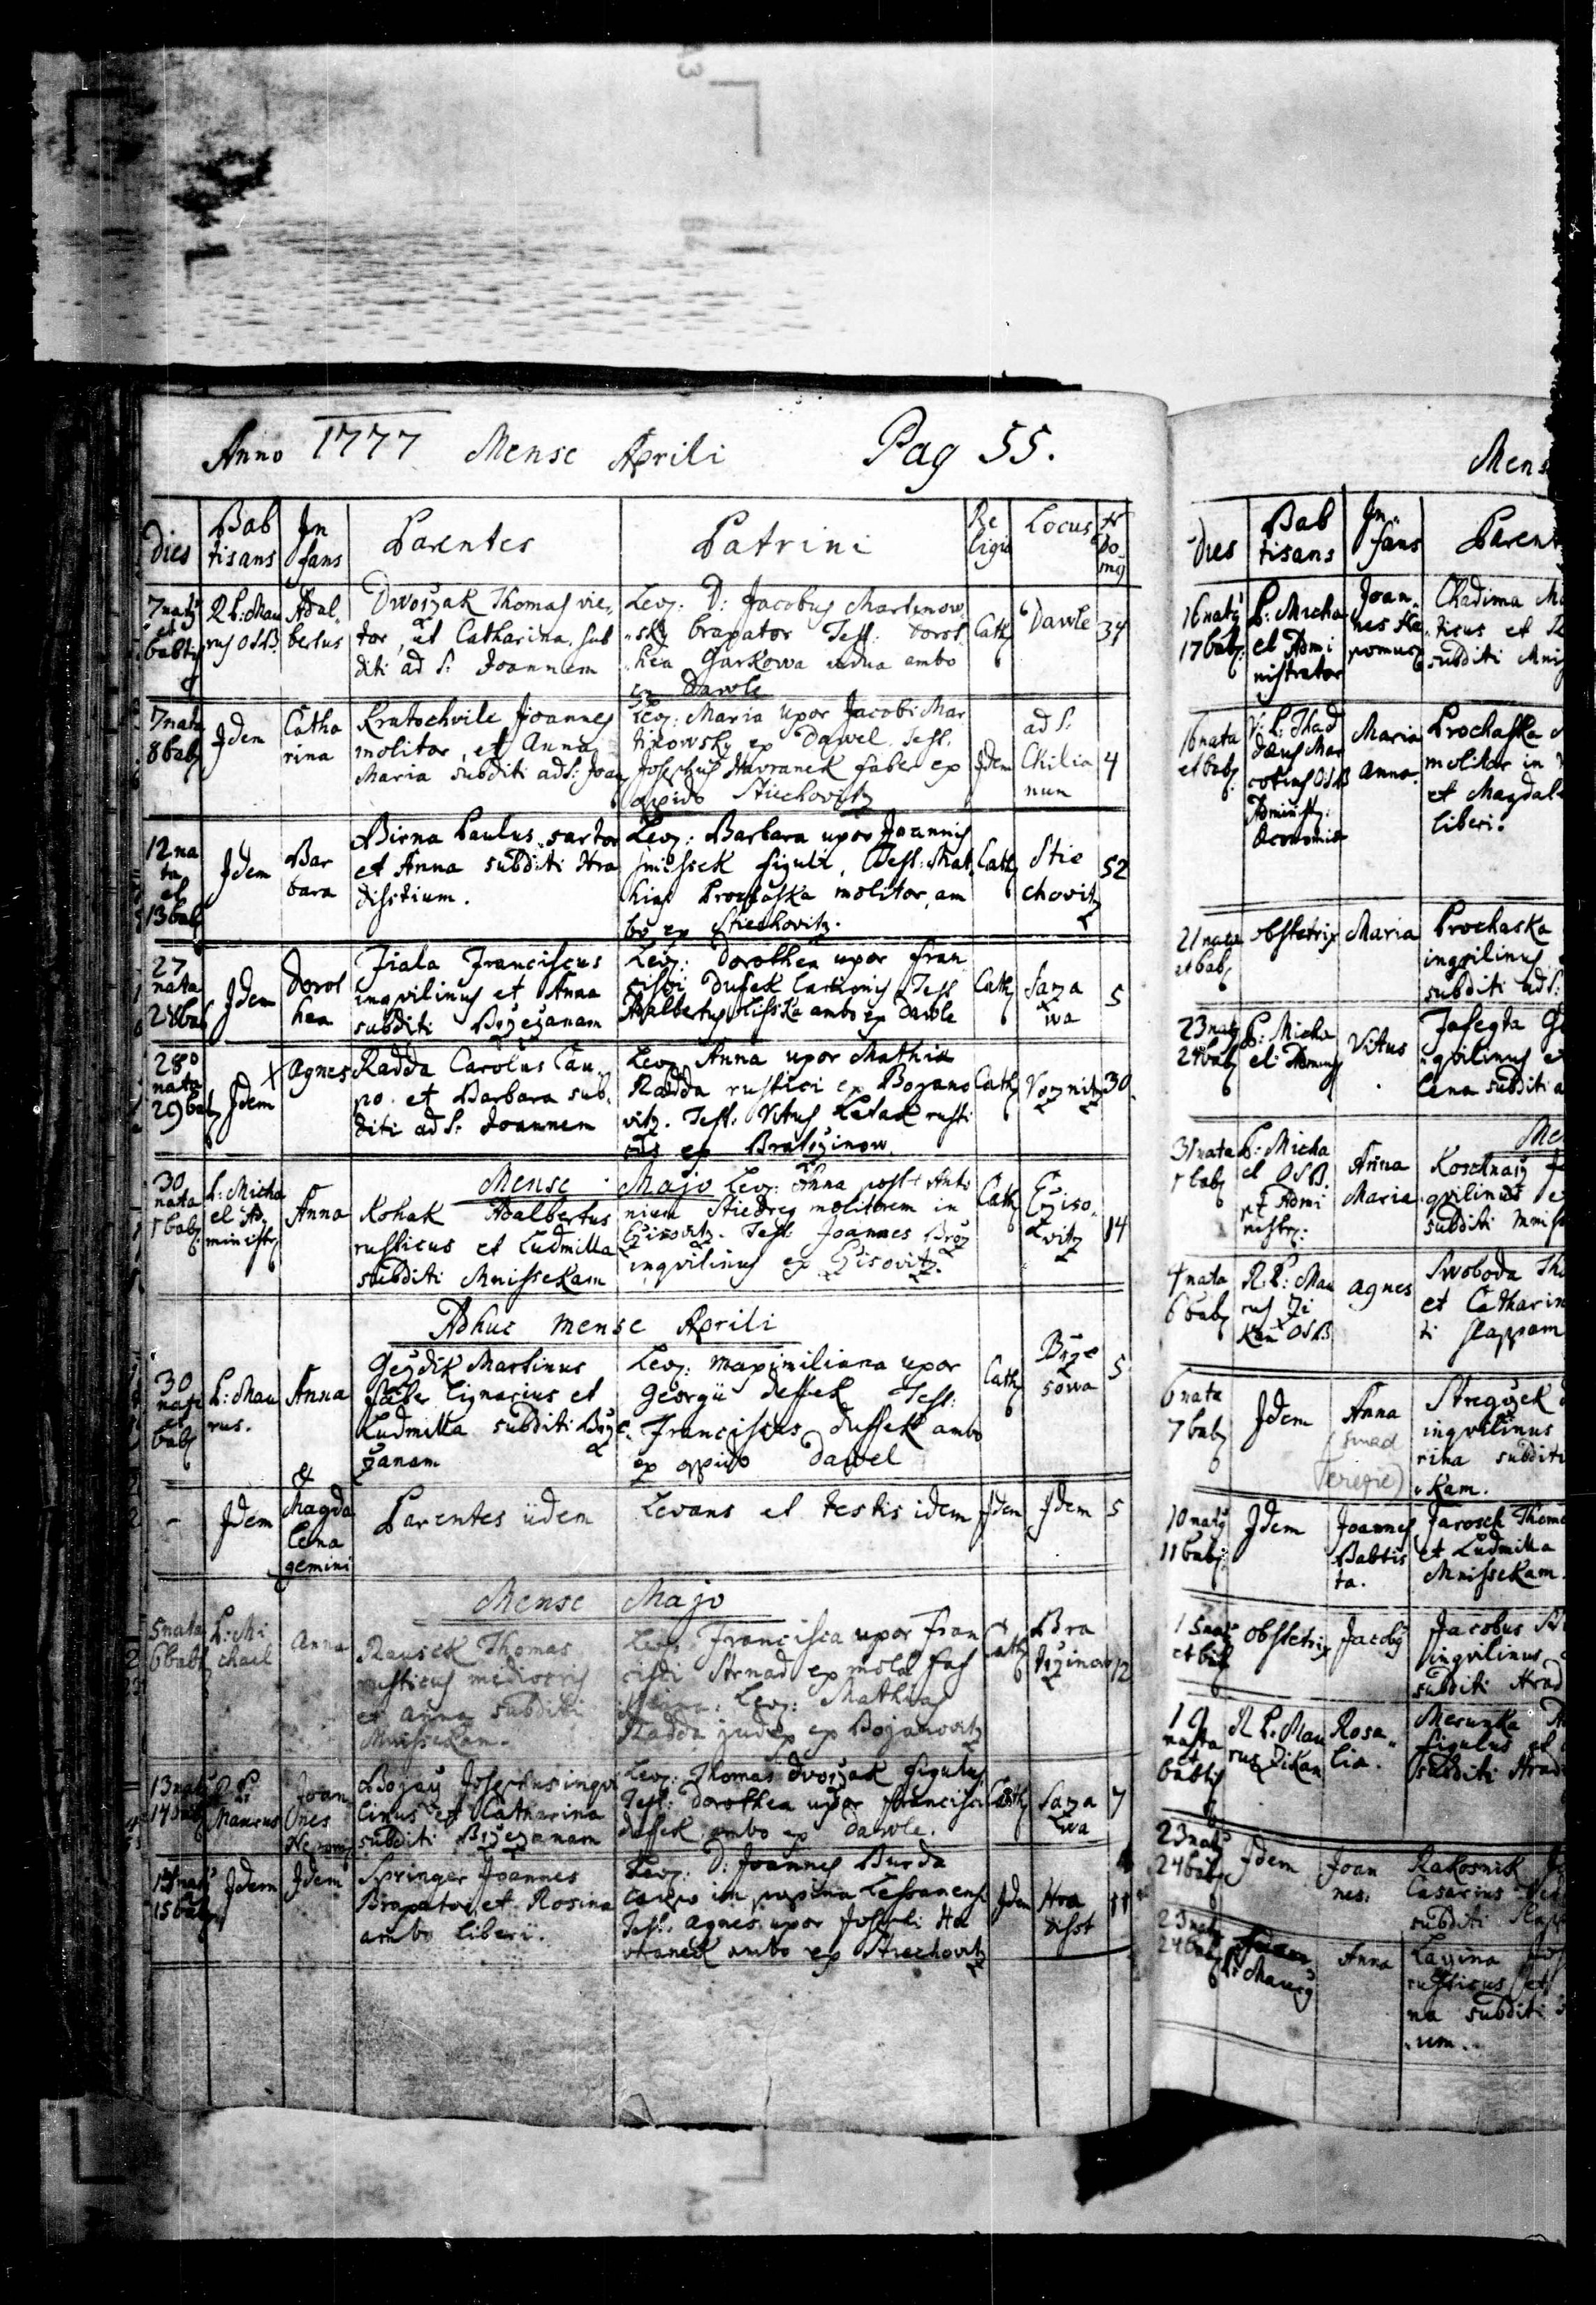 Anno 1777 Mense Aprili Pag 55.
Dies
Bab
tisans
In
fans
Parentes
Patrini
Re
ligio
Locus
Nr
do
mq
7 natq
et
babtiz
R P: Mau
rus OSB.
Adal„
bertus
Dworžak Thomas vie„
tor, et Catharina sub
diti ad S: Joannem
Lev: D: Jacobus Martinow
„sky braxator Test: Dorot
„hea Garkowa vidua ambo
ex Dawle
Cath
Dawle
34
7 nata
8 bab
Idem
Catha
rina
Kratochvile Joannes
molitor, et Anna
Maria subditi ad S: Joan
Lev: Maria uxor Jacobi Mar
tinowsky ex Dawel. Test.
Josephus Havranek faber ex
oppido Stiechovitz
Idem
ad S:
Chilia
num
4
12 na
ta
et
13 bab
Idem
Bar
bara
Birna Paulus sartor
et Anna subditi Hra
distium.
Lev: Barbara uxor Joannis
Smissek figuli, Test: Mat
hias Prochaska molitor, am
bo ex Stiechovitz.
Cath
Stie
chovitz
52
27
nata
28 bab
Idem
Dorot
hea
Fiala Franciscus
inqvilinus et Anna
subditi Bržežanam
Lev: Dorothea uxor Fran
cisci Dusek lanionis, Test
Adalbertus Lisska ambo ex Dawle
Cath
Saza
wa
5
28
nata
29 bab
Idem
X
Agnes
Radda Carolus Cau„
po et Barbara sub„
diti ad S: Joannem
Lev: Anna uxor Mathiæ
Radda rustici ex Bojano
vitz. Test: Vitus Latak rusti
cus ex Bratržinow.
Cath
Voznitz
30
30
nata
1 bab
P: Micha
el Ad„
ministr
Anna
Mense Majo
Kohak Adalbertus
rusticus et Ludmilla
subditi Mnissekam
Lev: Anna post + Anto
nium Stiedrey molitorem in
Cžisovitz. Test Joannes Brož
inqvilinus ex Cžisovitz.
Cath
Cžiso„
vitz
14
Adhuc Mense Aprili
30
natæ
et
bab
P: Mau
rus.
Anna
Geydik Martinus
faber lignarius et
Ludmilla subditi Brže
žanam
Lev: Maximiliana uxor
Georgii Dussek Test:
Franciscus Dussek ambo
ex oppido Dawel
Cath
Brže
sowa
5
-
Idem
&
Magda
lena
gemini
Parentes iidem
Levans et testis idem
Idem
Idem
5
Mense Majo
5 nata
6 bab
P: Mi
chael
Anna
Rausek Thomas
rusticus mediocris
et Anna subditi
Mnissekam.
Lev: Francisca uxor Fran
cisci Strnad ex mola
Lev: Mathias
Radda judex ex Bojanovitz
Cath
Bra
tržinow
12
13 natq
14 bab
R P:
Maurus
Joan„
nes
Nepom
Bozay Josephus inqvi
linus et Catharina
subditi Bržezanam
Lev: Thomas Dvoržak figulus
Test: Dorothea uxor Francisci
Dussek ambo ex Dawle.
Cath
Saza
wa
7
15 bab
Idem
Idem
Springer Joannes
Braxator et Rosina
ambo liberi.
Lev: D: Joannes Burda
caupo in popina Lessanensi
Test: Agnes uxor Josephi Ha
vranek ambo ex Stiechovitz
Idem
Hra
disst
11
Mens
Dies
Bab
tisans
In„
fans
Paren
16 natq
17 bab:
P: Micha
el Admi
nistrator
Joan„
nes Ne
pomuc
Chadima
ticus et
subditi Mni
16 nata
et bab
V: P: Thad
dæus Mar
OSB
Administ:
Œconomiæ
Maria
Anna.
Prochaska
molitor in
et Magdal
liberi.
21 nata
et bab
Obstetrix
Maria
Prochaska
inqvilinus
subditi ad S:
23 natq
24 bab
P: Micha
el
Vitus
inqvilinus e
lena subditi a
31 nata
1 bab
P: Micha
el OSB.
et Admi
nistr:
Anna
Maria
Me
qvilinus e
subditi Mniss
4 nata
6 bab
R: P: Mau
rus Zi
kan OSB
Agnes
Swoboda Th
et Catharin
ti slappam
6 nata
7 bab
Idem
Anna
Stregček
inqvilinus
rina subditi
„kam.
10 natq
11 bab:
Idem
Joannes
Babtis
ta.
Jarosch Thom
et Ludmilla
Mnissekam.
15 natq
et bab
Obstetrix
Jacobq
Jacobus
inqvilinus
subditi Hrad
19
nata
et
babtiz
R P: Mau
rus Zikan
Rosa„
lia.
Merunka
figulus et
subditi Hrad
23 natq
24 bab
Idem
Joan
nes.
Rakosnik
Casarius
subditi Slap
23 nata
24 bab
P: Maurq
Anna
rusticus et
na subditi
„um.